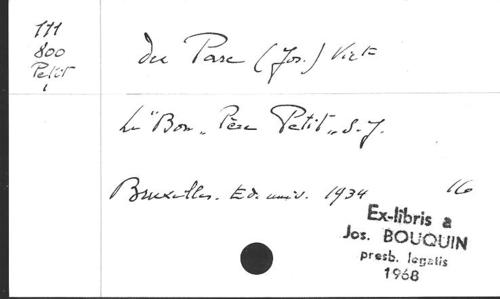 111
800
Petit
du Parc (Jos.) Victe
Le "Bon" Père Petit", S.J.
Bruxelles. Ed. univ. 1934
16
Ex-libris a
Jos. BOUQUIN
presb. legatis
1968